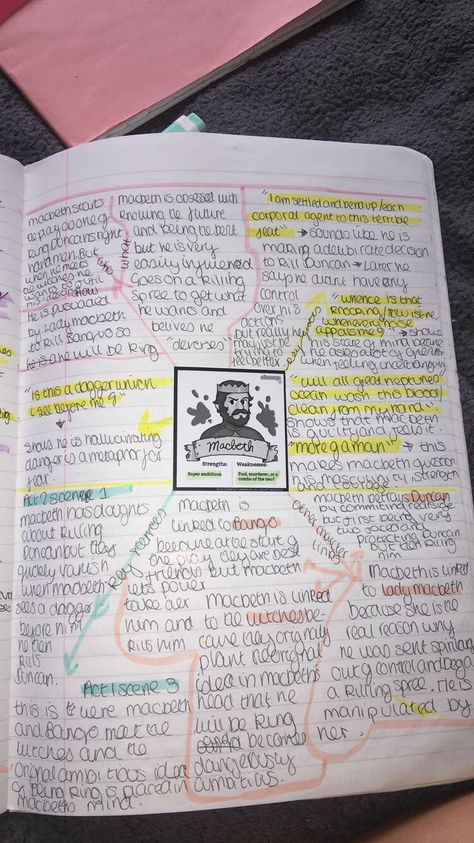 macbeth starts
he play as one of
king Duncans right
hand men. But
when he meets
the witches he
wants so
He is persuaded
by Lady macbeth
to kill Banquo so
he is are will be king
macbeth is obsessed with
knowing he future
and being he best
but he is very
easily influenced
Goes on a killing
spree to get what
he wants and
belives he
"deserves"
who
what
how
"I am settled and bend up/each
corporal agent to this terrible
feat" → sounds like he is
making a delibirate decision
to kill Duncan → Later he
says he didnt have any
control
over his
actions
but really he
may just be
trying to
feel better
"whence is that
knocking/how ist me
when every noise
appals me?" → shows
this state of mind because
he asks alot of questions
when feeling uncertain
"will all great neptunes
ocean wash this blood
clean from my hand"
shows that macbeth
is guilty and regrets it
"more of a man" → this
makes macbeth question
also
macbeth betrays Duncan
by commiting regicide
but first being very
two faced
protecting Duncan
then killing
him
"Is this a dagger which
i see before me?"
→
shows he is hallucinating
danger is a metaphor for
fear
Act 2 scene 1
macbeth has doughts
about killing
Duncan but they
quickly vanish
when macbeth
sees a dagger
before him
he then
kills
Duncan.
key themes
Macbeth
Strengths:
Super ambitious
Weaknesses:
Fool, murderer, or a
combo of the two?
other character
links
macbeth is
linked to Banqo
because at the start of
the play they are best
friends but macbeth
lets power
take over
him and
kills him
macbeth is linked
to the witches be
cause they originally
plant the original
idea in macbeths
head that he
will be king
he becomes
dangerously
ambitious.
Macbeth is linked
to lady macbeth
because she is the
real reason why
he was sent spiriling
out of control and began
a killing spree. He is
manipulated by
her.
Act 1 scene 3
this is were macbeth
and Banqo meet the
witches and the
original ambitious idea
of being king is placed in
macbeths mind.